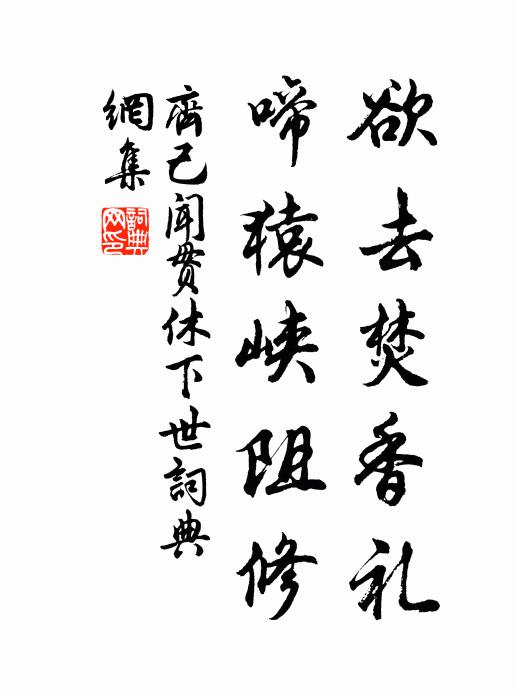 欲去焚香礼
啼猿峡阻修
齊己聞貫休下世詞典
網集
詞典網印